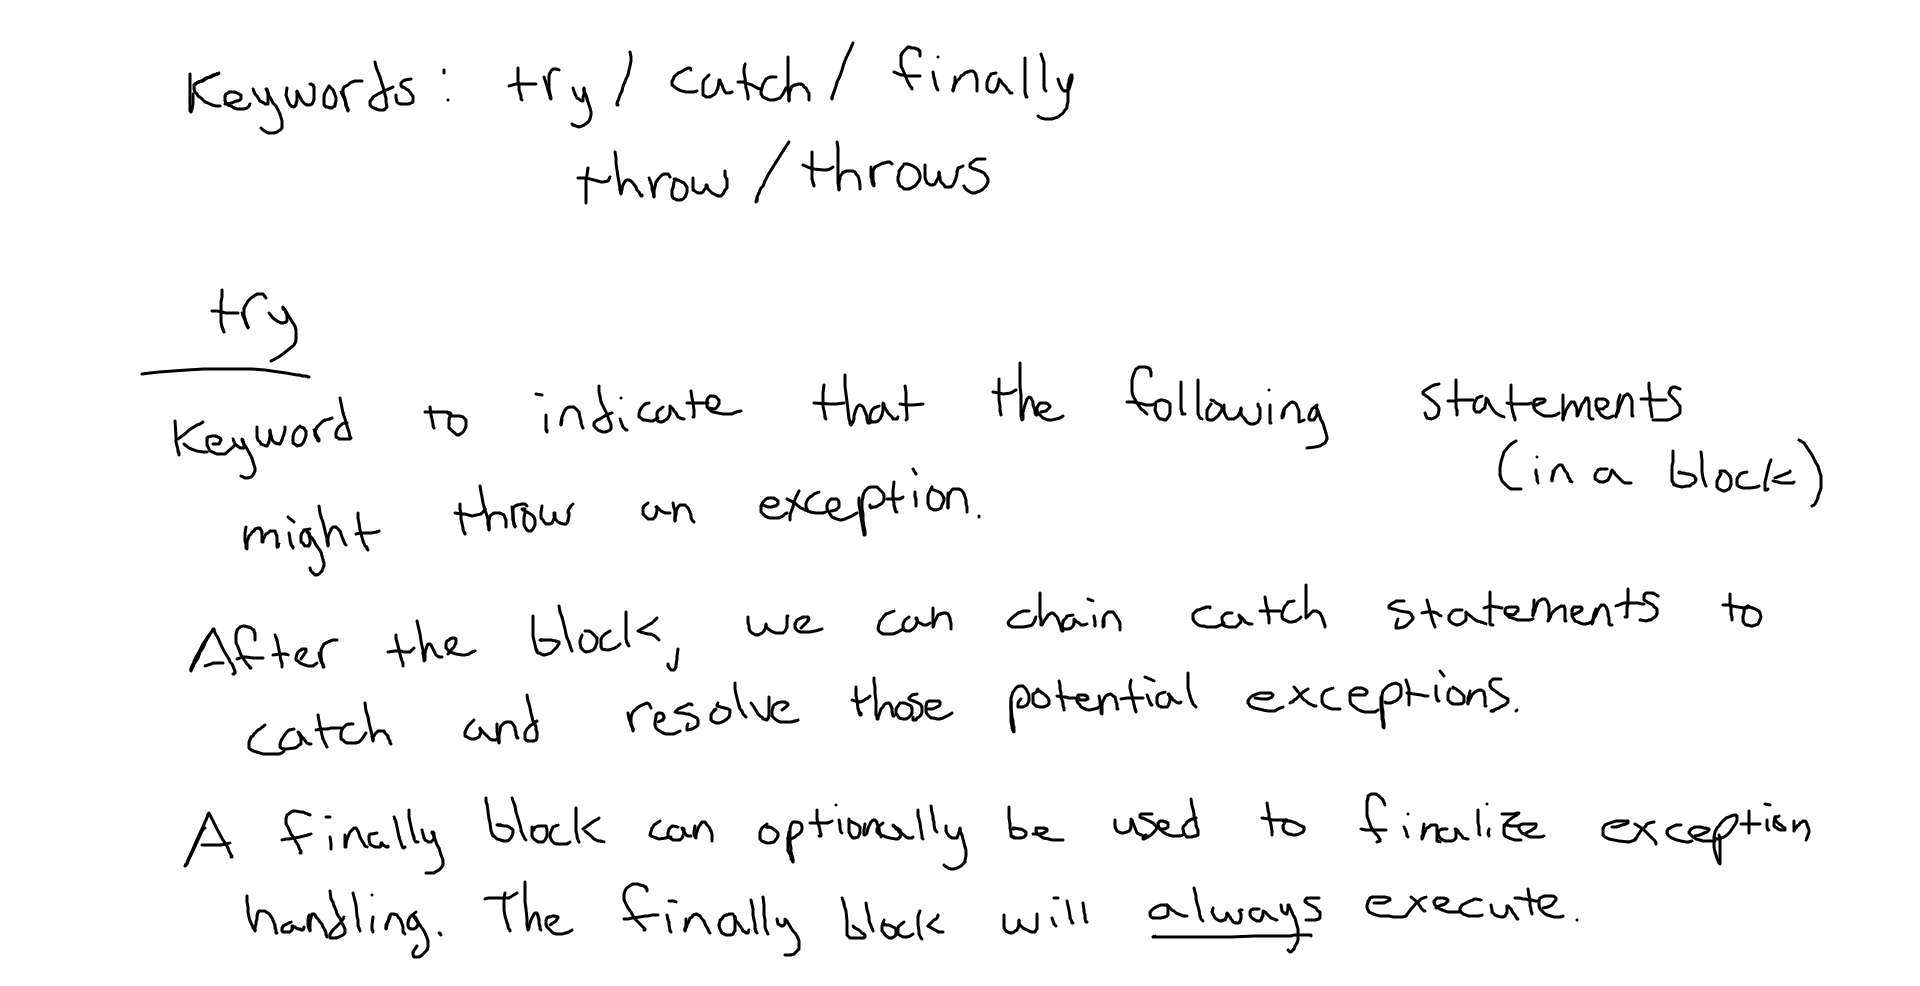 Keywords: try / catch / finally
throw / throws
try
Keyword to indicate that the following statements
(in a block)
might throw an exception.
After the block, we can chain catch statements to
catch and resolve those potential exceptions.
A finally block can optionally be used to finalize exception
handling. The finally block will always execute.